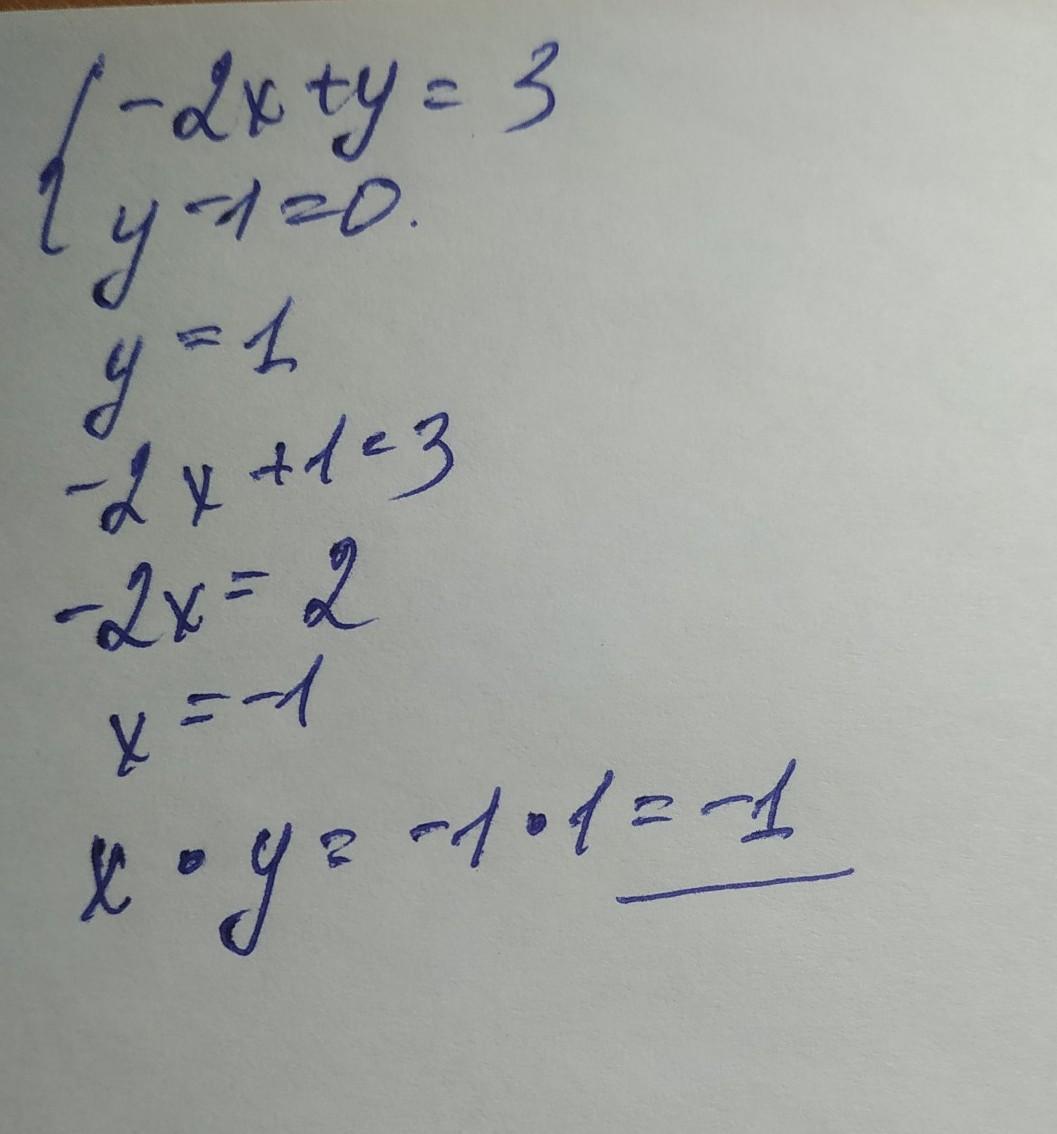 { -2x + y = 3
y - 1 = 0.
y = 1
-2x + 1 = 3
-2x = 2
x = -1
x • y = -1 • 1 = -1